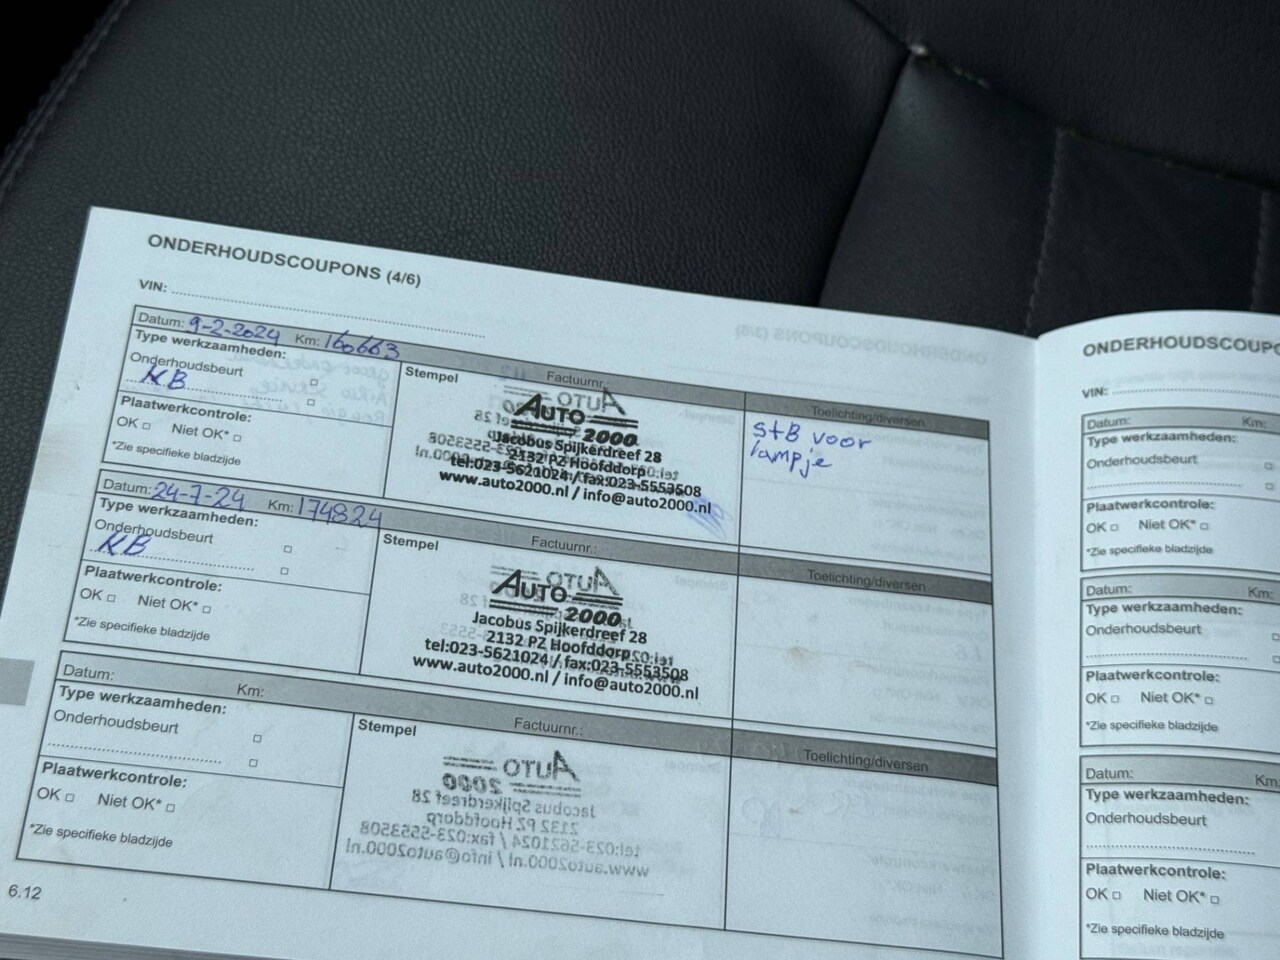 ONDERHOUDSCOUPONS (4/6)
VIN:
Datum: 9-2-2024 Km: 160663
Type werkzaamheden:
Onderhoudsbeurt
KB
Plaatwerkcontrole:
OK Niet OK*
*Zie specifieke bladzijde
Stempel Factuurnr.:
AUTO
2000
Jacobus Spijkerdreef 28
2132 PZ Hoofddorp
tel:023-5621024 / fax:023-5553508
www.auto2000.nl / info@auto2000.nl
Toelichting/diversen
St B voor
lampje
Datum: 24-7-24 Km: 174824
Type werkzaamheden:
Onderhoudsbeurt
KB
Plaatwerkcontrole:
OK Niet OK*
*Zie specifieke bladzijde
Stempel Factuurnr.:
AUTO
2000
Jacobus Spijkerdreef 28
2132 PZ Hoofddorp
tel:023-5621024 / fax:023-5553508
www.auto2000.nl / info@auto2000.nl
Toelichting/diversen
Datum: Km:
Type werkzaamheden:
Onderhoudsbeurt
Plaatwerkcontrole:
OK Niet OK*
*Zie specifieke bladzijde
Stempel Factuurnr.:
AUTO
2000
Jacobus Spijkerdreef 28
2132 PZ Hoofddorp
tel:023-5621024 / fax:023-5553508
www.auto2000.nl / info@auto2000.nl
Toelichting/diversen
6.12
ONDERHOUDSCOUPO
VIN:
Datum: Km:
Type werkzaamheden:
Onderhoudsbeurt
Plaatwerkcontrole:
OK Niet OK*
*Zie specifieke bladzijde
Datum: Km:
Type werkzaamheden:
Onderhoudsbeurt
Plaatwerkcontrole:
OK Niet OK*
*Zie specifieke bladzijde
Datum: Km:
Type werkzaamheden:
Onderhoudsbeurt
Plaatwerkcontrole:
OK Niet OK*
*Zie specifieke bladzijde